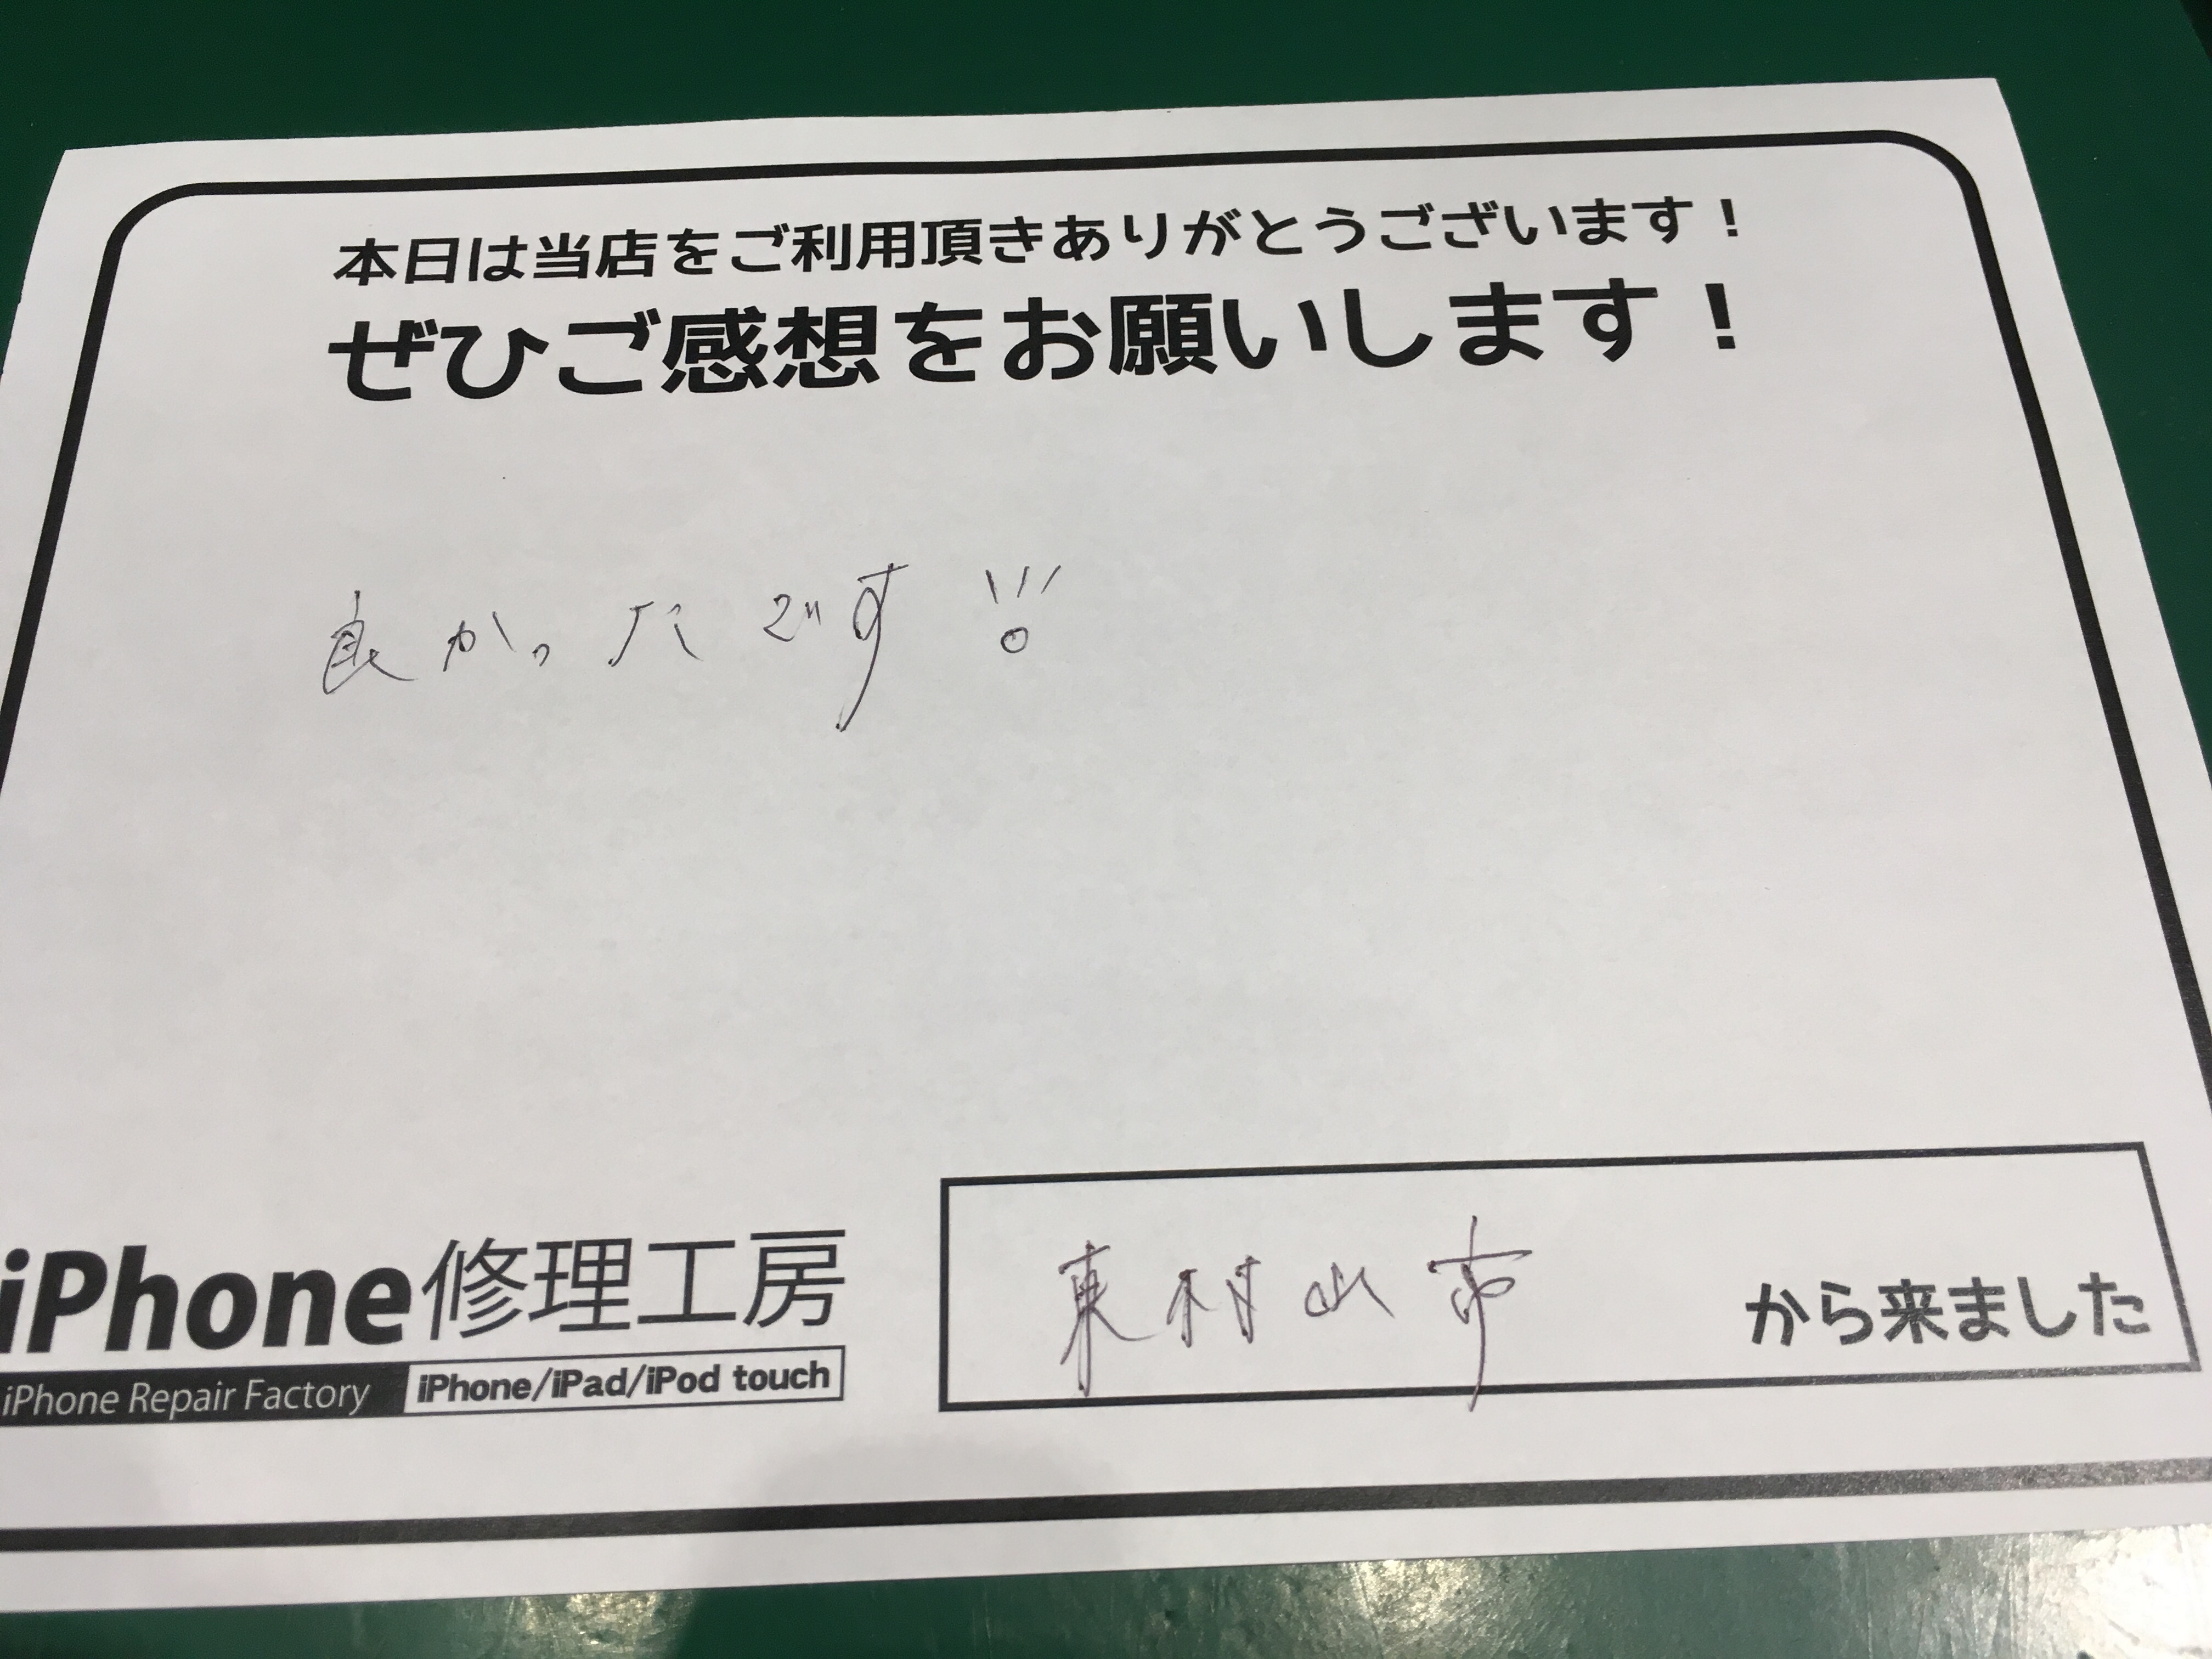 本日は当店をご利用頂きありがとうございます！
ぜひご感想をお願いします！
良かったです!!!
iPhone修理工房
iPhone Repair Factory iPhone/iPad/iPod touch
東村山市 から来ました